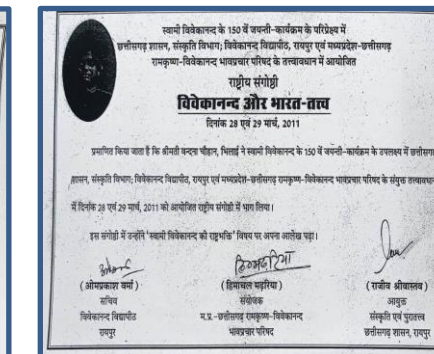 स्वामी विवेकानन्द के 150 वें जयन्ती-कार्यक्रम के परिप्रेक्ष्य में
छत्तीसगढ़ शासन, संस्कृति विभाग; विवेकानन्द विद्यापीठ, रायपुर एवं मध्यप्रदेश-छत्तीसगढ़
रामकृष्ण-विवेकानन्द भावप्रचार परिषद के तत्त्वावधान में आयोजित
राष्ट्रीय संगोष्ठी
विवेकानन्द और भारत-तत्त्व
दिनांक 28 एवं 29 मार्च, 2011
प्रमाणित किया जाता है कि श्रीमती वन्दना चौहान, भिलाई ने स्वामी विवेकानन्द के 150 वें जयन्ती-कार्यक्रम के उपलक्ष्य में छत्तीसगढ़
शासन, संस्कृति विभाग; विवेकानन्द विद्यापीठ, रायपुर एवं मध्यप्रदेश-छत्तीसगढ़ रामकृष्ण-विवेकानन्द भावप्रचार परिषद के संयुक्त तत्त्वावधान
में दिनांक 28 एवं 29 मार्च, 2011 को आयोजित राष्ट्रीय संगोष्ठी में भाग लिया।
इस संगोष्ठी में उन्होंने "स्वामी विवेकानन्द की राष्ट्रभक्ति" विषय पर अपना आलेख पढ़ा।
(ओमप्रकाश वर्मा) (हिमाचल मढ़रिया) (राजीव श्रीवास्तव)
सचिव संयोजक आयुक्त
विवेकानन्द विद्यापीठ म.प्र.-छत्तीसगढ़ रामकृष्ण-विवेकानन्द संस्कृति एवं पुरातत्त्व
रायपुर भावप्रचार परिषद छत्तीसगढ़ शासन, रायपुर